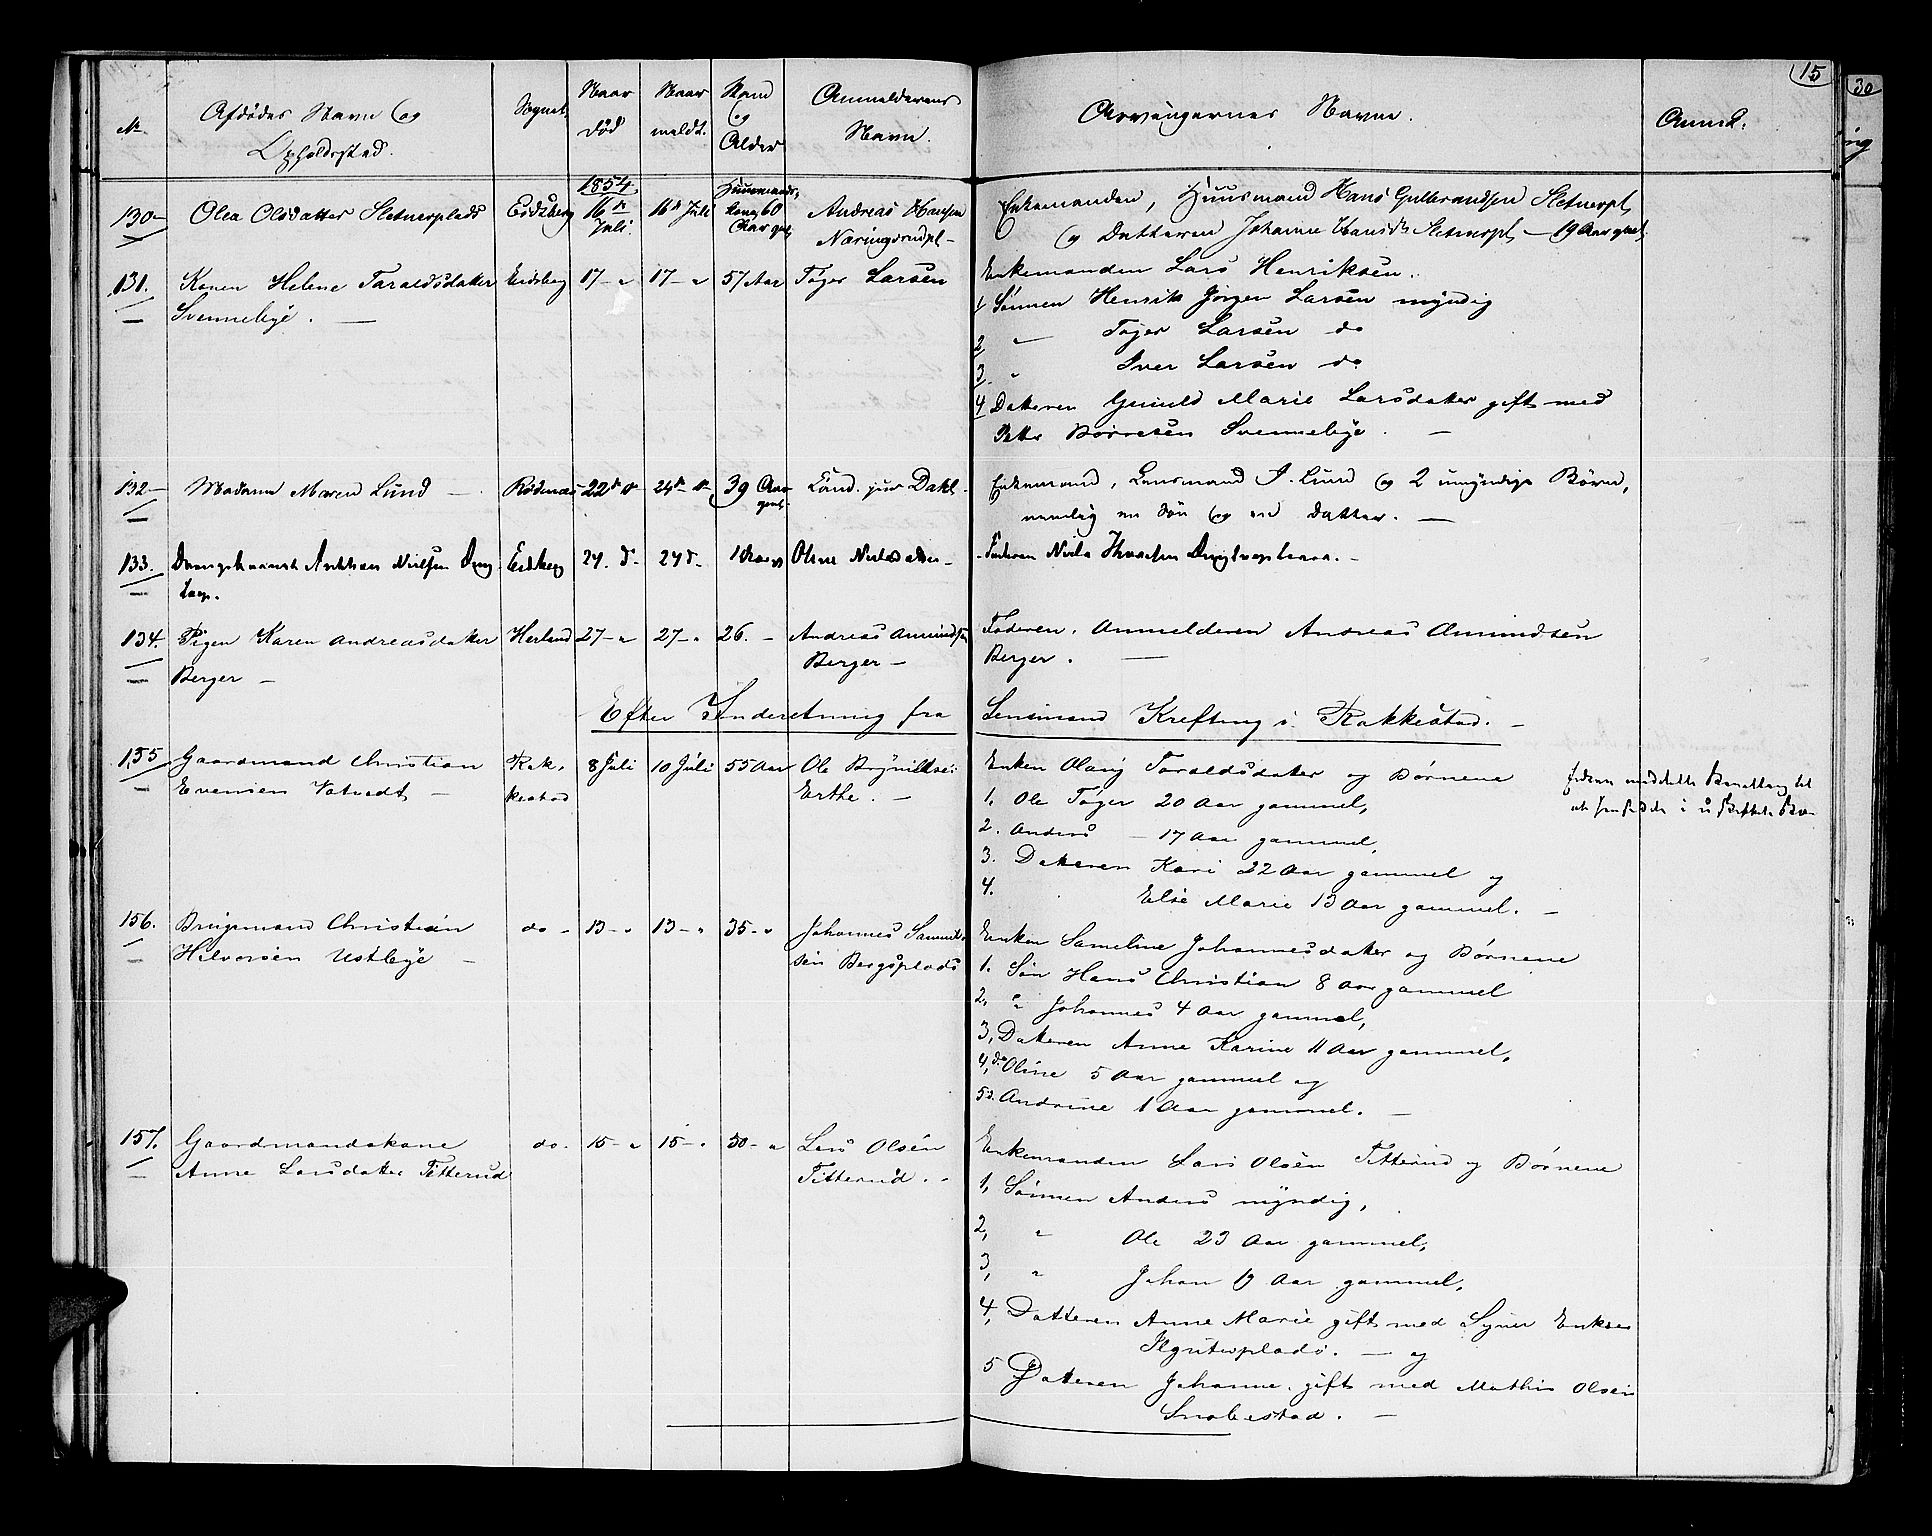 15
30
No.
Afdødes Navn og
Opholdssted.
Sognet
Naar
død
Naar
meldt.
Stand
og
Alder
Anmelderens
Navn.
Arvingernes Navne.
Anmk.
1854
130 Olea Olsdatter Sletnerplads Eidsberg 16de Juli 16de Juli Huusmands-
kone 60
Aar gl. Andreas Hansen
Næringsrudpl. Enkemanden, Huusmand Hans Gulbrandsen Sletnerpl.
og Datteren Johanne Hansd. Sletnerpl. 19 Aar gml.
131. Konen Helene Taraldsdatter Eidsberg 17 - " 17 - " 57 Aar Tøger Larsen Enkemanden Lars Henriksen.
Svenneby. 1 Sønnen Henrik Jørgen Larsen myndig
2 " Tøger Larsen do
3 " Iver Larsen do
4 Datteren Gunild Marie Larsdatter gift med
Petter Børresen Svenneby.
132 Madame Maren Lund Rødenæs 22de 24de 39 Aar
gml. Cand. jur Dahl. Enkemand, Lensmand Lund og 2 umyndige Børn,
nemlig en Søn og en Datter.
133. Anthon Nielsen Eidsberg 24. d. 24 d. Oline Nielsdatter Faderen Niels
134. Pigen Karen Andreasdatter Herland 27 - " 27 - " 26. - Andreas Amundsen Faderen, Anmelderen Andreas Amundsen
Berger - Berger - Berger.
Efter Inderetning fra Lensmand Krefting i Rakkestad.
155 Gaardmand Christian Rak- 8 Juli 10 Juli 55 Aar Ole Brynildsen Enken Olaug Taraldsdatter og Børnene
Evensen Vatvedt - kestad Erthe. 1. Ole Tøger 20 Aar gammel,
2. Anders - 17 Aar gammel,
3. Datteren Kari 22 Aar gammel og
4. Else Marie 13 Aar gammel.
Enken meddelte Bevilling til
at hensidde i uskiftet Bo
156. Brugsmand Christian do - 13 - " 13 - " 35 - " Johannes Samuel- Enken Sameline Johannesdatter og Børnene
Halvorsen Ustbye - sen Bergsplads 1. Søn Hans Christian 8 Aar gammel
2, " Johannes 4 Aar gammel,
3, Datteren Anne Karine 11 Aar gammel,
4, do Oline 5 Aar gammel og
5 d. Andrine 1 Aar gammel.
157. Gaardmandskone do - 15 - " 15 - " 50 - " Lars Olsen Enkemanden Lars Olsen Titterud og Børnene
Anne Larsdatter Titterud Titterud. - 1, Sønnen Anders myndig,
2, " Ole 23 Aar gammel,
3, " Johan 19 Aar gammel,
4, Datteren Anne Marie gift med Syver Eriksen
og
5 Datteren Johanne gift med Mathis Olsen